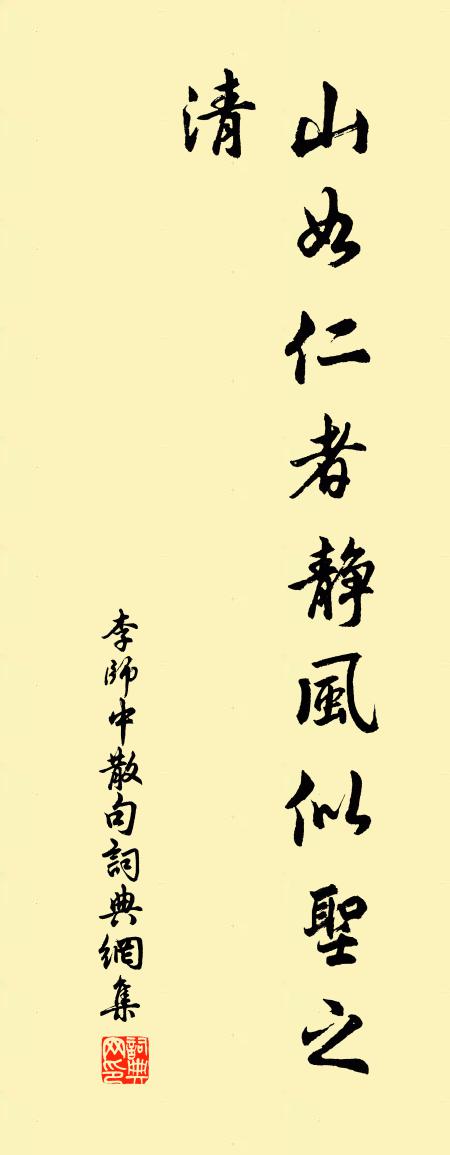 山如仁者静風似聖之
清
李師中散句詞典網集
詞典网印